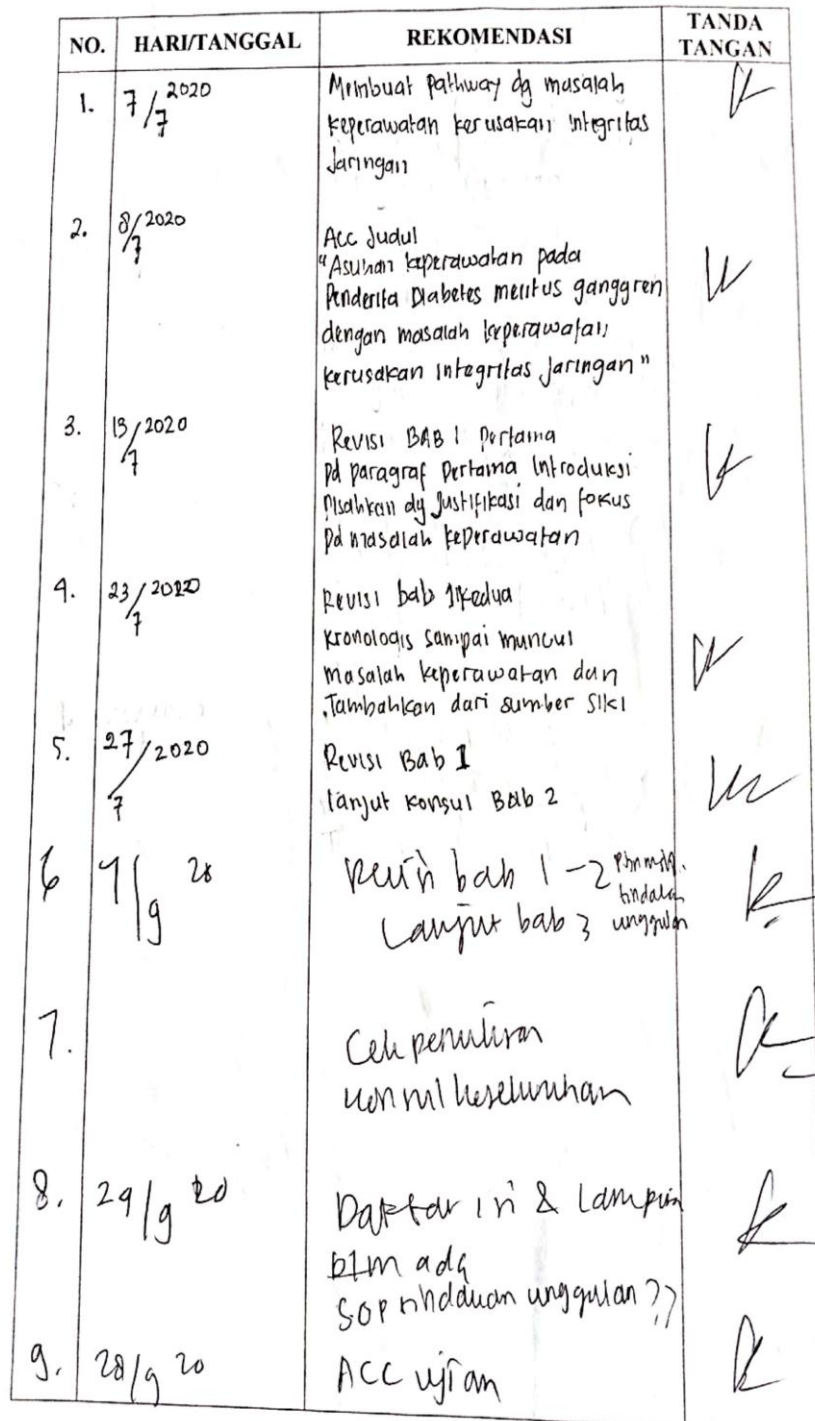 NO. HARI/TANGGAL REKOMENDASI TANDA TANGAN
1. 7/7 2020 Membuat pathway dg masalah
keperawatan kerusakan integritas
Jaringan
2. 8/7 2020 Acc Judul
"Asuhan keperawatan pada
Penderita Diabetes melitus ganggren
dengan masalah keperawatan
kerusakan integritas Jaringan"
3. 13/7 2020 Revisi BAB 1 Pertama
Pd paragraf pertama Introduksi
Pisahkan dg Justifikasi dan fokus
Pd masalah keperawatan
4. 23/7 2020 Revisi bab 1 kedua
kronologis sampai muncul
masalah keperawatan dan
Tambahkan dari sumber SIKI
5. 27/7 2020 Revisi Bab 1
lanjut konsul Bab 2
6 9 20 bab 1-2
tindakan
Lanjut bab 3 unggulan
7. Cek penulisan
konsul keseluruhan
8. 29/9 20 Daftar isi & Lampiran
blm ada
SOP unggulan ??
9. 28/9 20 ACC ujian